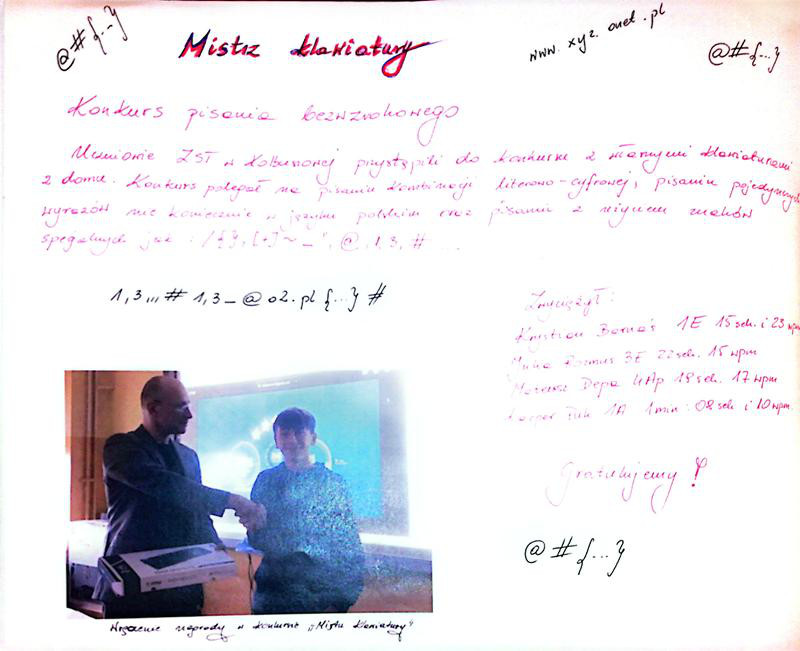 @#{...}
Mistrz klawiatury
www.xyz.onet.pl
@#{...}
Konkurs pisania bezwzrokowego
Uczniowie ZST w Kolbuszowej przystąpili do konkursu z własnymi klawiaturami
z domu. Konkurs polegał na pisaniu kombinacji literowo-cyfrowej, pisaniu pojedynczych
wyrazów nie koniecznie w języku polskim oraz pisaniu z użyciem znaków
specjalnych jak : / { } , [ + ] ~ _ " , @ , 1, 3, # ...
1,3,,, # 1,3_@o2.pl {...} #
Zwyciężył :
Krystian Bernaś 1E 15 sek. i 23 wpm
3E 22 sek. 15 wpm
Mateusz Depa 4Ap 18 sek. 17 wpm
Kacper 1A 1min. 08 sek i 10 wpm.
Gratulujemy !
@ # {...}
Wręczenie nagrody w konkursie „Mistrz klawiatury"